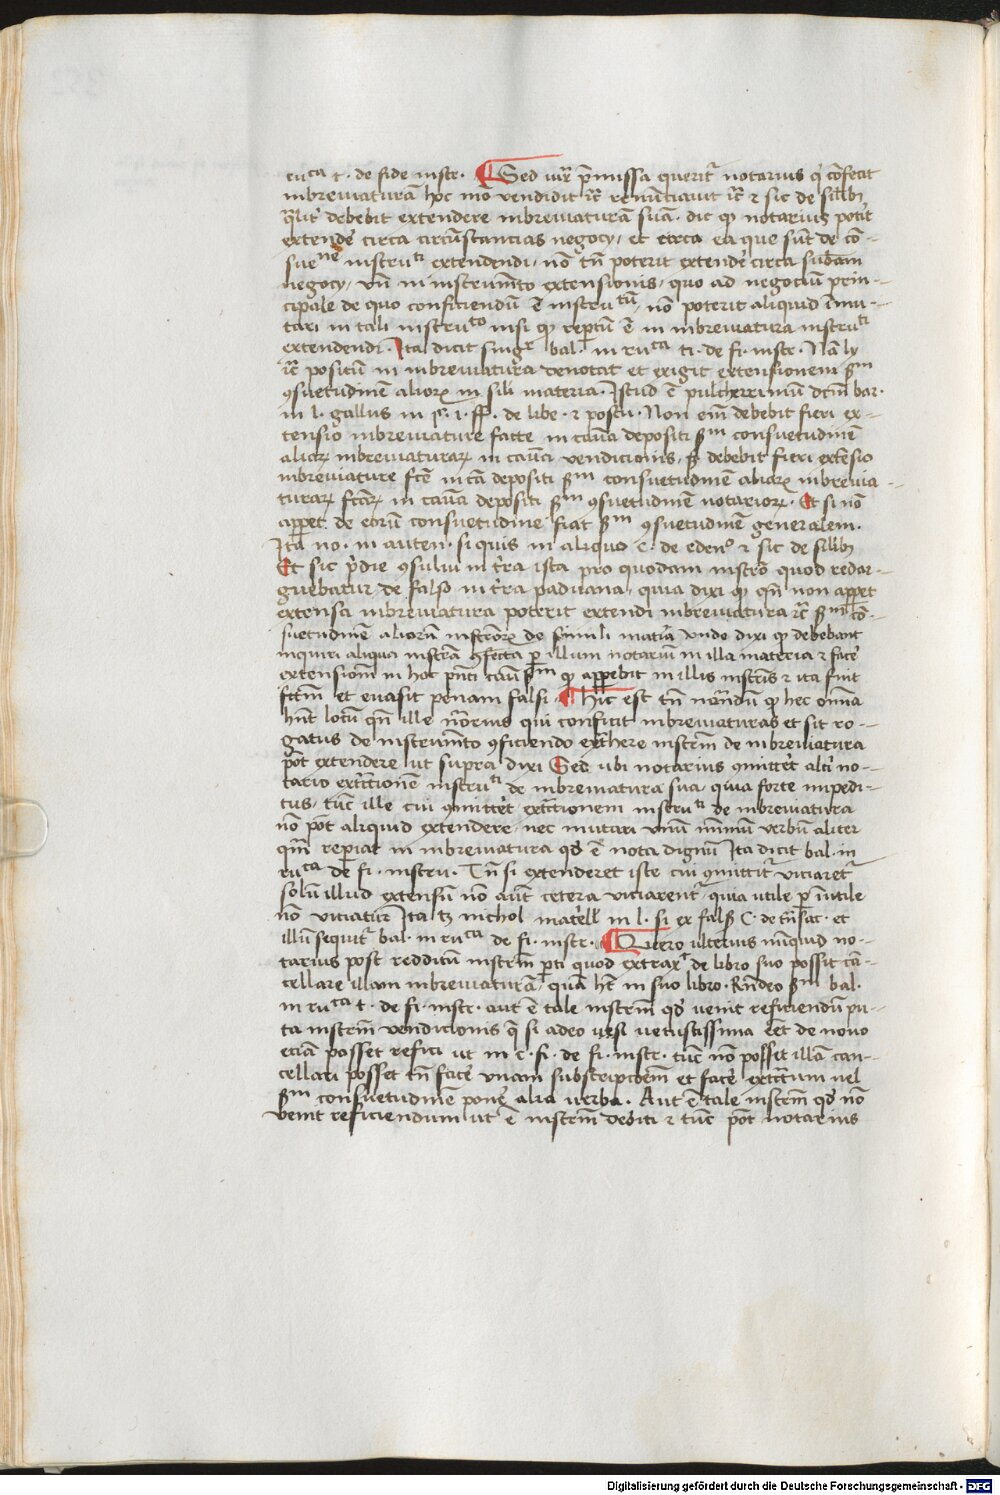 ruca t. de fide instr. Sed iuxᷓ p̄missa queritᷣ notarius qͥ cōfecit
inbreuiaturā hoc mō vendidit ꝛc̄ renūciauit ꝛc̄ ⁊ sic de silibꝫ
qᷓlitᷣ debebit extendere inbreuiaturā suā. dic ꝙ notarius potᷣit
extendeᷣ circa circūstancias negocy / et circa ea que sūt de cō-
suene instruti extendendi / nō tn̄ poterit extendeᷣ circa subām
negocy / vn̄ in instrumēto extensionis / quo ad negociū prin-
cipale de quo conficiendū ē instrutū / nō poterit aliquid īmu-
tari in tali instruto nisi ꝙ rep̄tum ē in inbreuiatura instruti
extendendi. Ita dicit singᷣ bal. in ruca ti. de fi. instr. Nā ly
ꝛc̄ positū in inbreuiatura denotat et exigit extensionem ẜm
ꝯsuetudinē alioꝝ in sili materia. Istud ē pulcherrimū dcm̄ bar.
in l. gallus in p̄. i. ff. de libe. ⁊ postu. Non em̄ debebit fieri ex-
tensio inbreuiature facte in cauā depositi ẜm consuetudinē
aliaꝝ inbreuiaturaꝝ in cauā vendicionis, sꝫ debebit fieri extēsio
inbreuiature fcē in cā depositi ẜm consuetudinē aliaꝝ inbreuia-
turaꝝ fctaꝝ in cauā depositi ẜm ꝯsuetudinē notarioꝝ. Et si nō
appet̄ de eorū consuetudine fiat ẜm ꝯsuetudinē generalem.
Ita no. in auten. si quis in aliquo C. de edeno ⁊ sic de silibꝫ
Et sic p̄die ꝯsului in tr̄ra ista pro quodam instro quod redar-
guebatur de falso in tr̄ra paduana, quia dixi ꝙ qn̄ non appet
extensa inbreuiatura poterit extendi inbreuiatura ꝛc̄ ẜm cō-
suetudinē aliorū instroꝝ de simili matīa vnde dixi ꝙ debebant
inquiri aliqua instrā ꝯfecta ꝑ illum notariū in illa materia ⁊ faceᷣ
extensionē in hoc pn̄ti cauā ẜm ꝙ appebit in illis instris ⁊ ita fuit
fctm̄ et euasit penam falsi. hic est tn̄ notandū ꝙ hec omnia
hn̄t locū qn̄ ille notarius qui conficit inbreuiaturas et sit ro-
gatus de instrumēto ꝯficiendo extᷓhere instrm̄ de inbreuiatura
pōt extendere ut supra dixi Sed ubi notarius ꝯmittet̄ altᷣi no-
tario extᷓctionē instruti de inbreuiatura sua, quia forte impedi-
tus, tūc ille cui ꝯmittet̄ extᷓctionem instruti de inbreuiatura
nō pōt aliquid extendere, nec mutari vnū minimū verbū aliter
qm̄ repiat in inbreuiatura qd̄ ē nota dignū Ita dicit bal. in
ruca de fi. instru. Tn̄ si extenderet iste cui ꝯmittitᷣ viciaretᷣ
solū illud extensū nō aūt cetera viciarentᷣ, quia utile ꝑ īutile
nō viciatur Ita tꝫ nichol materell in l. si ex falsꝫ C. de tn̄sac. et
illū sequitᷣ bal. in ruca de fi. instr. Quero ulterius nūquid no-
tarius post redditū instrm̄ ꝑti quod extraxᷣ de libro suo possit cā-
cellare illam inbreuiaturā quā hēt in suo libro. Rn̄deo ẜm bal.
in ruca t. de fi. instr. aut ē tale instrm̄ qd̄ venit reficiendū pu-
ta instrm̄ vendicionis qꝫ si adeo uesi uetustissima eēt de nouo
eciā posset refici ut in c. si. de fi. instr. tūc nō posset illā can-
cellari posset tn̄ faceᷣ vnam subscripcōem et faceᷣ extᷓctum vel
ẜm consuetudinē poneᷣ alia verba. Aut ē tale instrm̄ qd̄ nō
venit reficiendum ut ē instrm̄ debiti ⁊ tūc pōt notarius
Digitalisierung gefördert durch die Deutsche Forschungsgemeinschaft - DFG